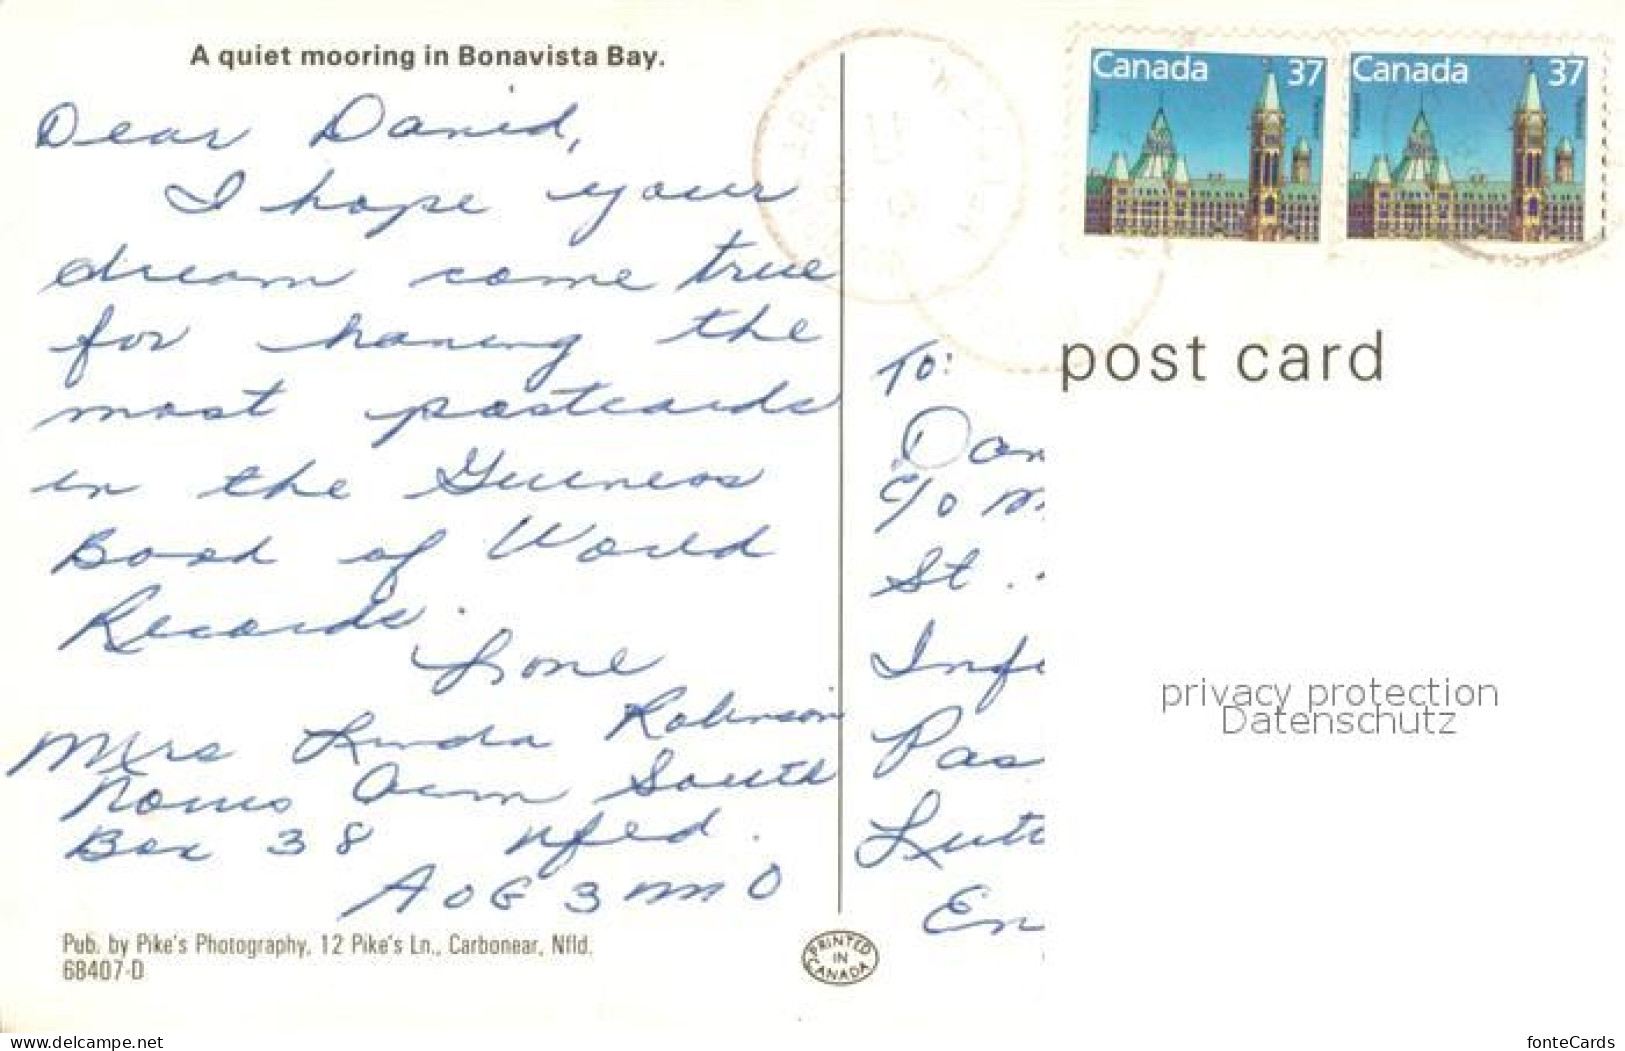 A quiet mooring in Bonavista Bay.
Dear David,
I hope your
dream come true
for having the
most postcards
in the Guiness
Book of World
Records.
Love
Mrs Linda Robinson
South
Box 38 Nfld.
A0G 3M0
Pub. by Pike's Photography, 12 Pike's Ln., Carbonear, Nfld.
68407-D
PRINTED
IN
CANADA
Canada 37
Canada 37
post card
To:
Da
c/o M
St.
Inf
Pas
Lut
En
privacy protection
Datenschutz
www.delcampe.net
fonteCards